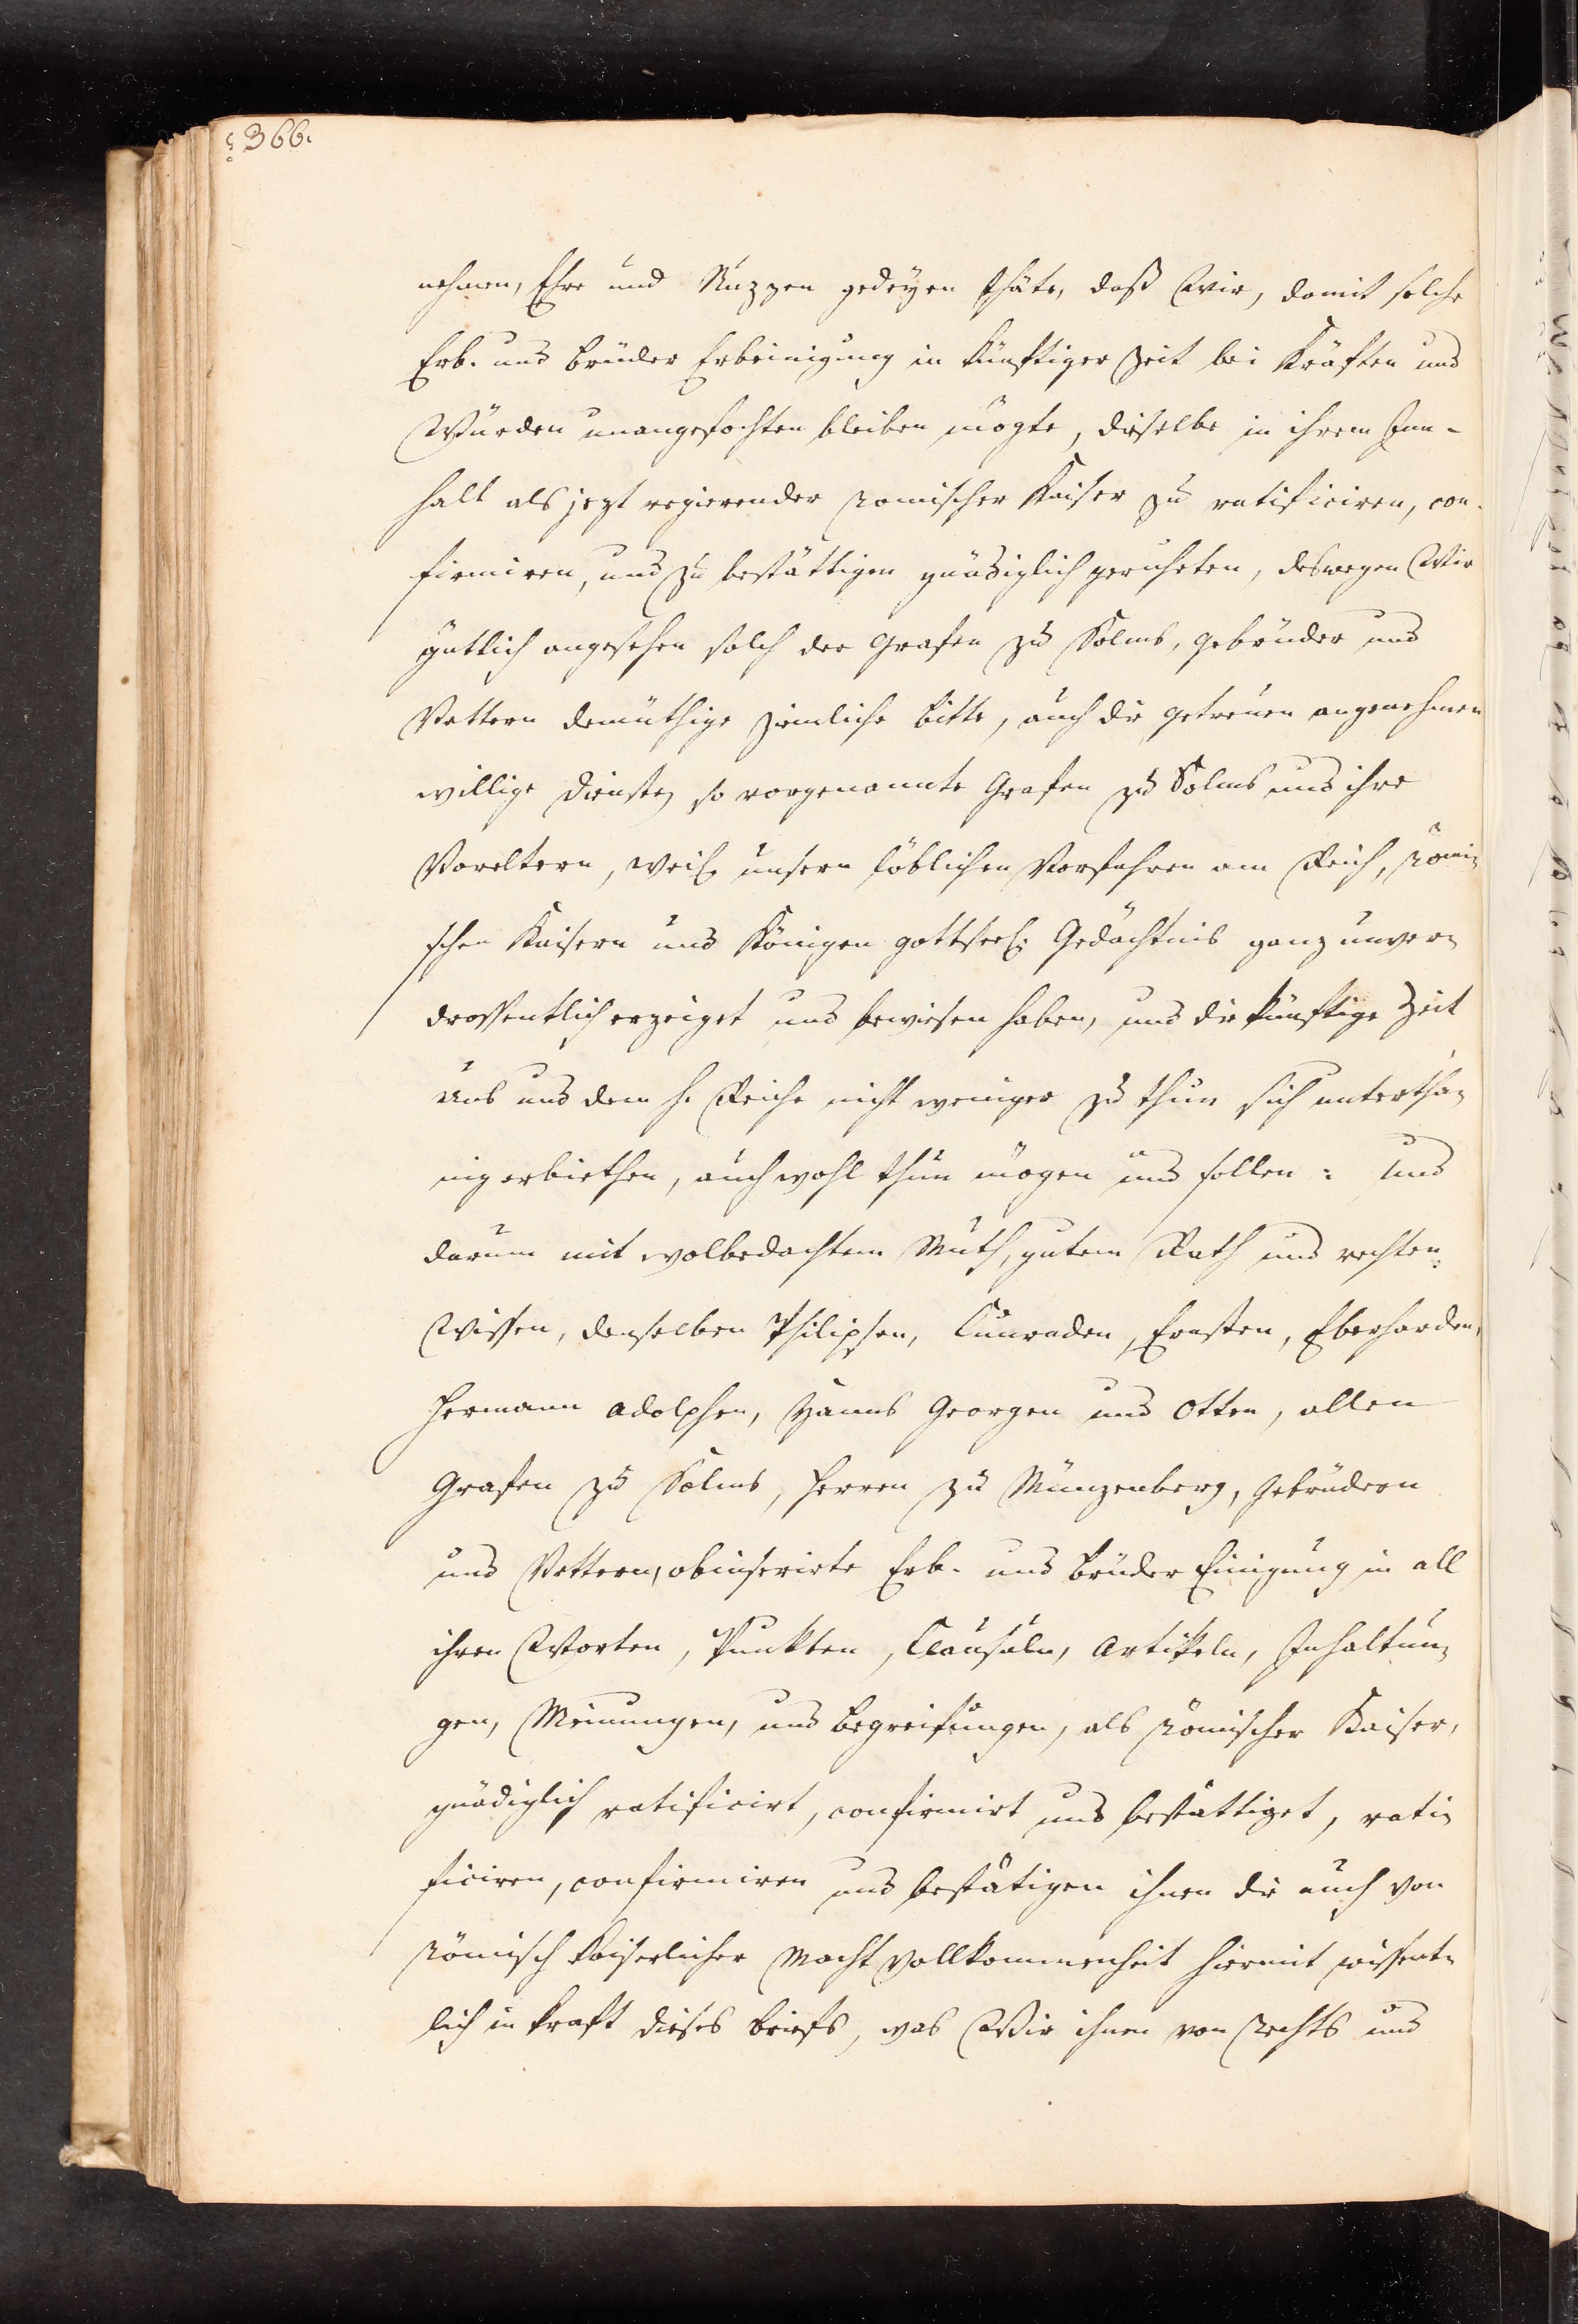 366.
nehmen, Ehre und Nuzzen gedeyen thäte, daß Wir, damit solche
Erb- und Brüder Erbeinigung in künftiger Zeit bei Kräften und
Würden unangefochten bleiben mögte, dieselbe in ihrem Inn-
halt als jezt regierender Romischer Kaiser zu ratificiren, con-
firmiren, und zu bestättigen gnädiglich geruheten, deswegen Wir
gütlich angesehen solch der Grafen zu Solms, Gebrüder und
Vettern demüthige ziemliche Bitte, auch die getreuen angenehmen
willige Dienste, so vorgenannte Grafen zu Solms und ihre
Voreltern, weil. unsern löblichen Vorfahren am Reich, Römi-
schen Kaisern und Königen gottseel: Gedächtnis ganz unver-
drossentlich erzeiget und bewiesen haben, und die künftige Zeit
uns und dem h. Reiche nicht weniger zu thun sich unterthä-
nig erbiethen, auch wohl thun mögen und sollen: Und
darum mit wolbedachtem Muth, gutem Rath und rechten
Wissen, denselben Philipsen, Cunraden, Ernsten, Eberharden,
Hermann Adolphen, Hanns Georgen und Otten, allen
Grafen zu Solms, Herren zu Münzenberg, Gebrüdern
und Vettern, obinserirte Erb- und Brüder Einigung in all
ihren Worten, Punkten, Clausuln, Artikeln, Inhaltun-
gen, Meinungen, und Begreifungen, als Römischer Kaiser,
gnädiglich ratificirt, confirmirt und bestättiget, rati-
ficiren, confirmiren und bestätigen ihnen die auch von
Römisch Kaiserlicher Macht Vollkommenheit hiermit wissent-
lich in Kraft dieses Briefs, was Wir ihnen von Rechts und